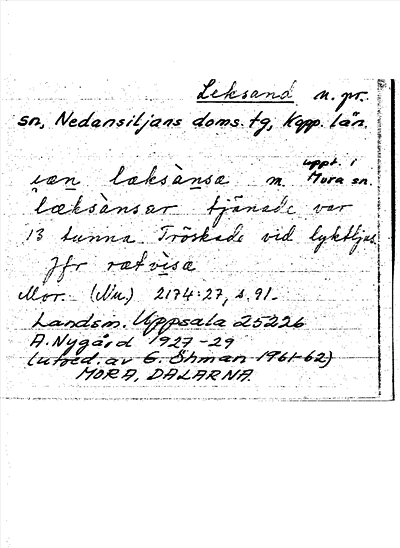 Leksand n. pr.
sn, Nedansiljans doms. tg, Kopp. län.
uppt. i
Mora sn.
læksànsa m.
læksànsar tjänade var
13 tunna Tröskade vid lyktljus
Jfr rætvìsa
Mor. (Nu.) 2174:27, s. 91.
Landsm. Uppsala 25226
A. Nygård 1927-29
(utred. av E. Öhman 1961-62)
MORA, DALARNA.